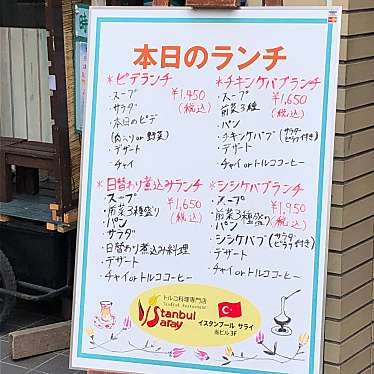 本日のランチ
*ピデランチ
・スープ ¥1,450
・サラダ (税込)
・本日のピデ
(肉入り or 野菜)
・デザート
・チャイ
*チキンケバブランチ
・スープ ¥1,650
・前菜3種 (税込)
・パン
・チキンケバブ(サラダ・ピラフ付き)
・デザート
・チャイ or トルココーヒー
*日替わり煮込みランチ
・スープ ¥1,650
・前菜3種盛り (税込)
・パン
・サラダ
・日替わり煮込み料理
・デザート
・チャイ or トルココーヒー
*シシケバブランチ
・スープ ¥1,950
・前菜3種盛り (税込)
・パン
・シシケバブ(サラダ・ピラフ付き)
・デザート
・チャイ or トルココーヒー
トルコ料理専門店
Turkish Restaurant
Istanbul
Saray
イスタンブール サライ